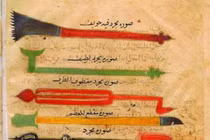 صورة مجرد فيه تجويف
صورة مجرد لطيف
صورة مجرد معطوف الطرف
صورة مقطع
صورة مجرد